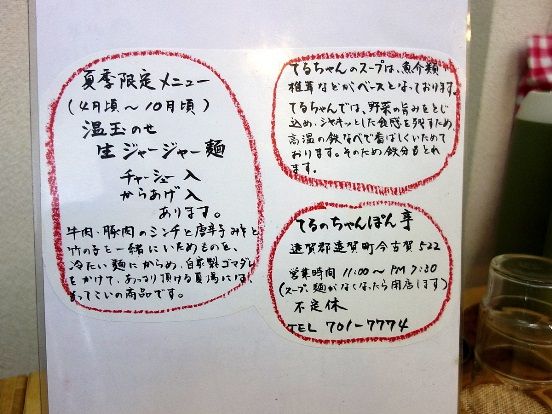 夏季限定メニュー
(4月頃〜10月頃)
温玉のせ
生ジャージャー麺
チャーシュー入
からあげ入
あります。
牛肉、豚肉のミンチと唐辛子みそと
竹の子を一緒にいためたものを、
冷たい麺にからめ、自家製ゴマダレ
をかけて、あっさり頂ける夏場には、
もってこいの商品です。
てるちゃんのスープは、魚介類
椎茸などがベースとなっております。
てるちゃんでは、野菜の旨みをとじ
込め、シャキッとした食感を残すため、
高温の鉄なべで香ばしくいためて
おります。そのため鉄分もとれ
ます。
てるのちゃんぽん亭
遠賀郡遠賀町今古賀522
営業時間 11:00〜PM7:30
(スープ、麺がなくなったら閉店します)
不定休
TEL 701-7774